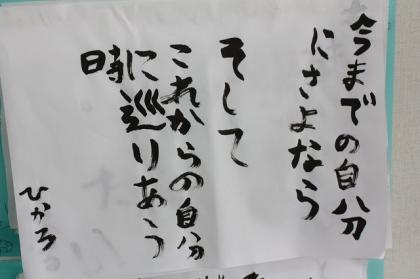 今までの自分
にさよなら
そして
これからの自分
に巡りあう
時
ひかる